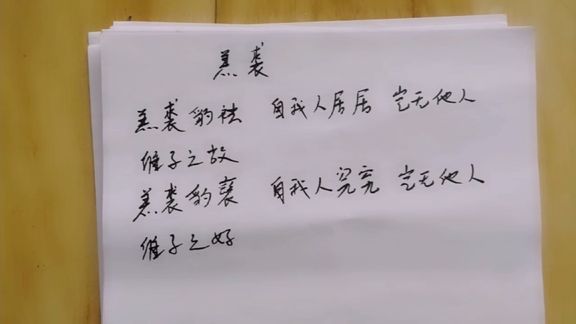 羔裘
羔裘豹祛 自我人居居 岂无他人
维子之故
羔裘豹褎 自我人究究 岂无他人
维子之好